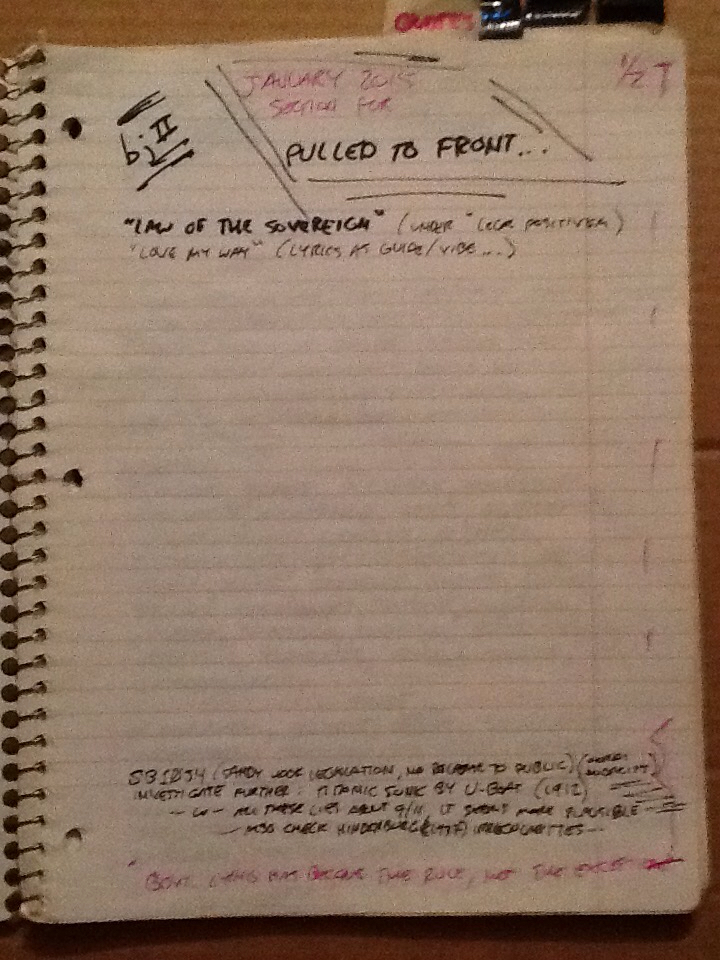 QUOTES
JANUARY 2015
SECTION FOR
1/2 T
bj II
PULLED TO FRONT...
"LAW OF THE SOVEREIGN" (UNDER "LEGAL POSITIVISM)
"LOVE MY WAY" (LYRICS AS GUIDE/VIBE...)
(SANDY HOOK LEGISLATION, NO RELEASE TO PUBLIC)
INVESTIGATE FURTHER: TITANIC SUNK BY U-BOAT (1912)
- W/ ALL THESE LIES ABOUT 9/11, IT SEEMS MORE PLAUSIBLE -
- ALSO CHECK HINDENBURG (1937) IRREGULARITIES--
" GOVT. LYING HAS BECOME THE RULE, NOT THE